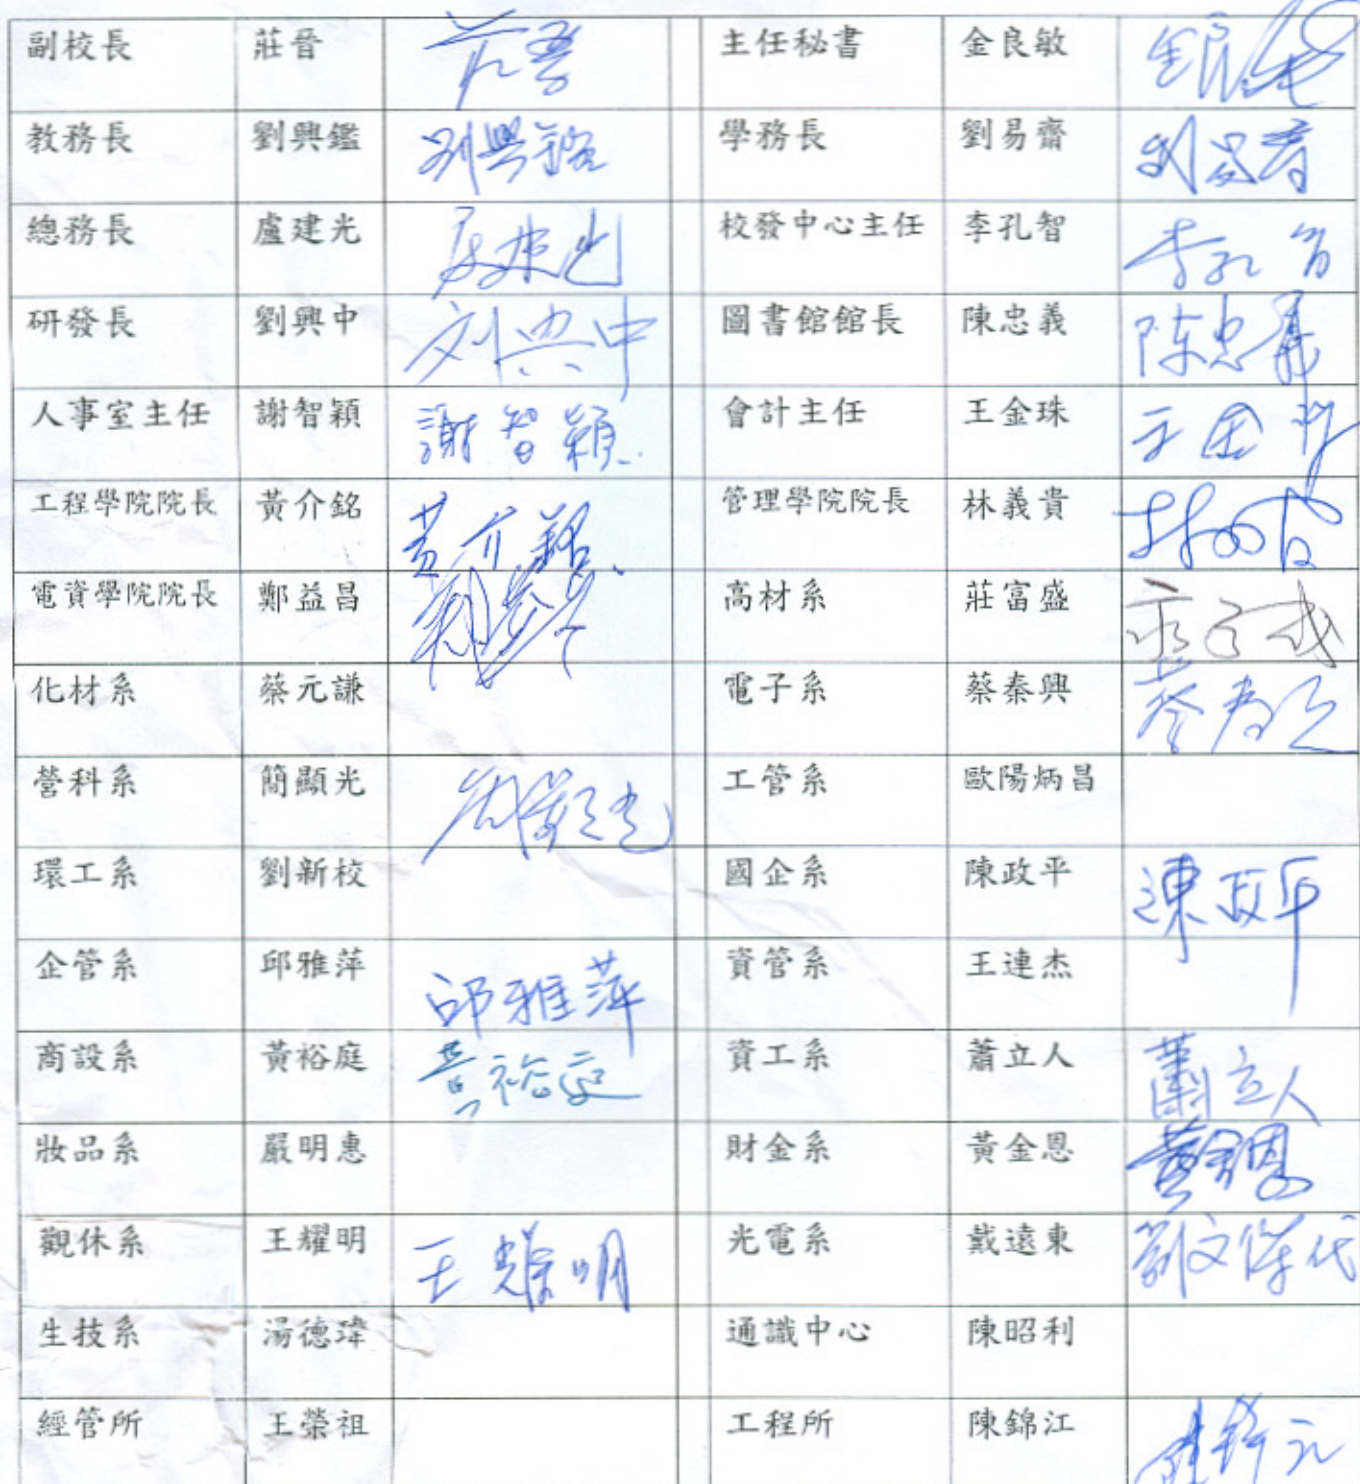 副校長 莊晉 主任秘書 金良敏
教務長 劉興鑑 劉興鑑 學務長 劉易齋 刘易斎
總務長 盧建光 校發中心主任 李孔智 李孔智
研發長 劉興中 刘興中 圖書館館長 陳忠義 陈忠義
人事室主任 謝智穎 謝智穎 會計主任 王金珠
工程學院院長 黃介銘 黃介銘 管理學院院長 林義貴
電資學院院長 鄭益昌 高材系 莊富盛
化材系 蔡元謙 電子系 蔡泰興
營科系 簡顯光 工管系 歐陽炳昌
環工系 劉新校 國企系 陳政平 陳政平
企管系 邱雅萍 邱雅萍 資管系 王連杰
商設系 黃裕庭 黃裕庭 資工系 蕭立人 蕭立人
妝品系 嚴明惠 財金系 黃金恩 黃金恩
觀休系 王耀明 王耀明 光電系 戴遠東 劉文傑代
生技系 湯德瑋 通識中心 陳昭利
經管所 王榮祖 工程所 陳錦江